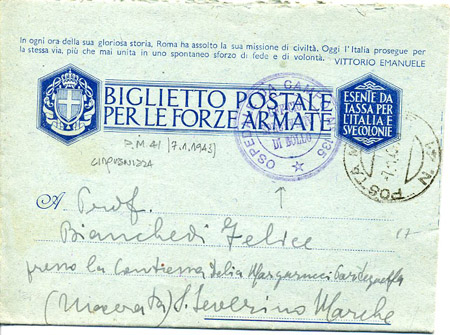 In ogni ora della sua gloriosa storia, Roma ha assolto la sua missione di civiltà. Oggi l'Italia prosegue per
la stessa via, più che mai unita in uno spontaneo sforzo di fede e di volontà. VITTORIO EMANUELE
BIGLIETTO POSTALE
PER LE FORZE ARMATE
ESENTE DA
TASSA PER
L'ITALIA E
SVE COLONIE
OSPEDALE DA CAMPO 135
DI BOLLO
POSTA M N. 41
P.M 41 (7.1.1943)
A Prof.
Bianchedi Felice
presso la Contessa Delia Margarucci
(Macerata) S. Severino Marche